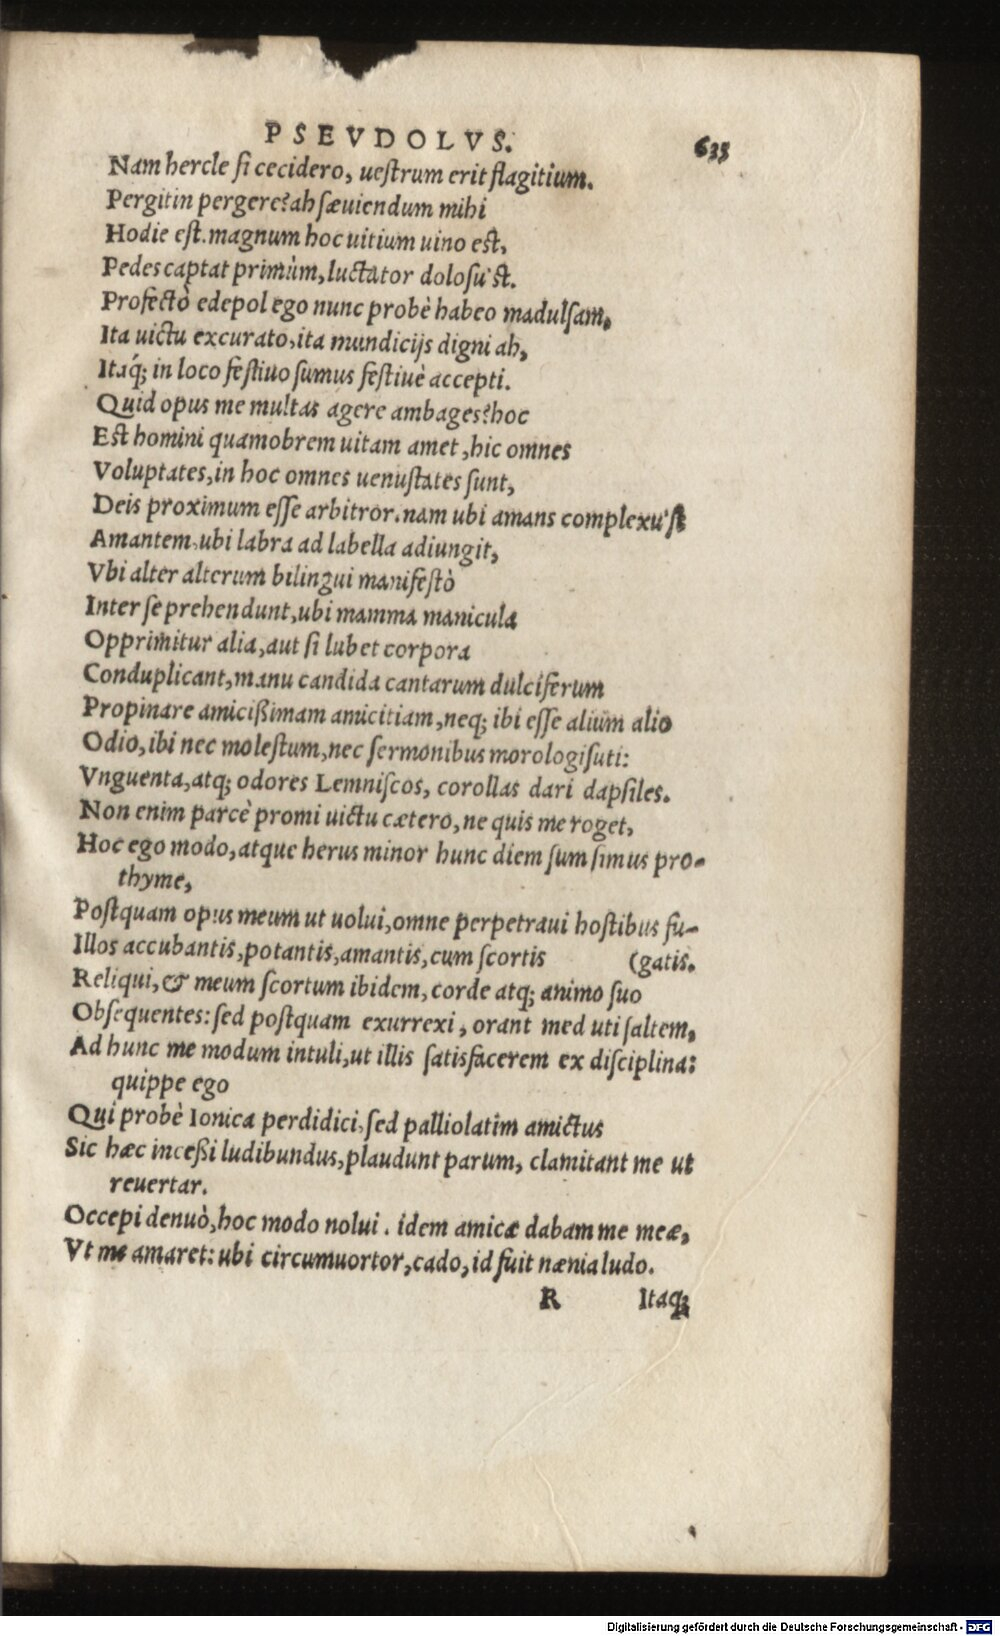 PSEVDOLVS. 633
Nam hercle si cecidero, uestrum erit flagitium.
Pergitin pergere? ah sæuiendum mihi
Hodie est. magnum hoc uitium uino est,
Pedes captat primùm, luctator dolosu'st.
Profectò edepol ego nunc probè habeo madulsam,
Ita uictu excurato, ita mundicijs digni ah,
Itaq́; in loco festiuo sumus festiuè accepti.
Quid opus me multas agere ambages? hoc
Est homini quamobrem uitam amet, hic omnes
Voluptates, in hoc omnes uenustates sunt,
Deis proximum esse arbitror. nam ubi amans complexu'st
Amantem, ubi labra ad labella adiungit,
Vbi alter alterum bilingui manifestò
Inter se prehendunt, ubi mamma manicula
Opprimitur alia, aut si lubet corpora
Conduplicant, manu candida cantarum dulciferum
Propinare amicißimam amicitiam, neq; ibi esse alium alio
Odio, ibi nec molestum, nec sermonibus morologis uti:
Vnguenta, atq; odores Lemniscos, corollas dari dapsiles.
Non enim parcè promi uictu cætero, ne quis me roget,
Hoc ego modo, atque herus minor hunc diem sumsimus pro-
thyme,
Postquam opus meum ut uolui, omne perpetraui hostibus fu-
Illos accubantis, potantis, amantis, cum scortis (gatis.
Reliqui, & meum scortum ibidem, corde atq; animo suo
Obsequentes: sed postquam exurrexi, orant med uti saltem,
Ad hunc me modum intuli, ut illis satisfacerem ex disciplina:
quippe ego
Qui probè Ionica perdidici, sed palliolatim amictus
Sic hæc inceßi ludibundus, plaudunt parum, clamitant me ut
reuertar.
Occepi denuò, hoc modo nolui. idem amicæ dabam me meæ,
Vt me amaret: ubi circumuortor, cado, id fuit nænia ludo.
R Itaq;
Digitalisierung gefördert durch die Deutsche Forschungsgemeinschaft - DFG